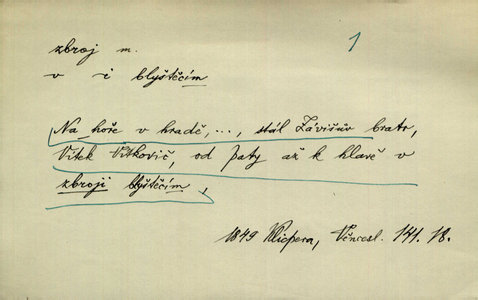 zbroj m. 1
v – i blyštěcím
Na hoře v hradě, ..., stál Závišův bratr,
Vítek Vítkovič, od paty až k hlavě v
zbroji blyštěcím,
1849 Klicpera, Věncesl. 141. 18.